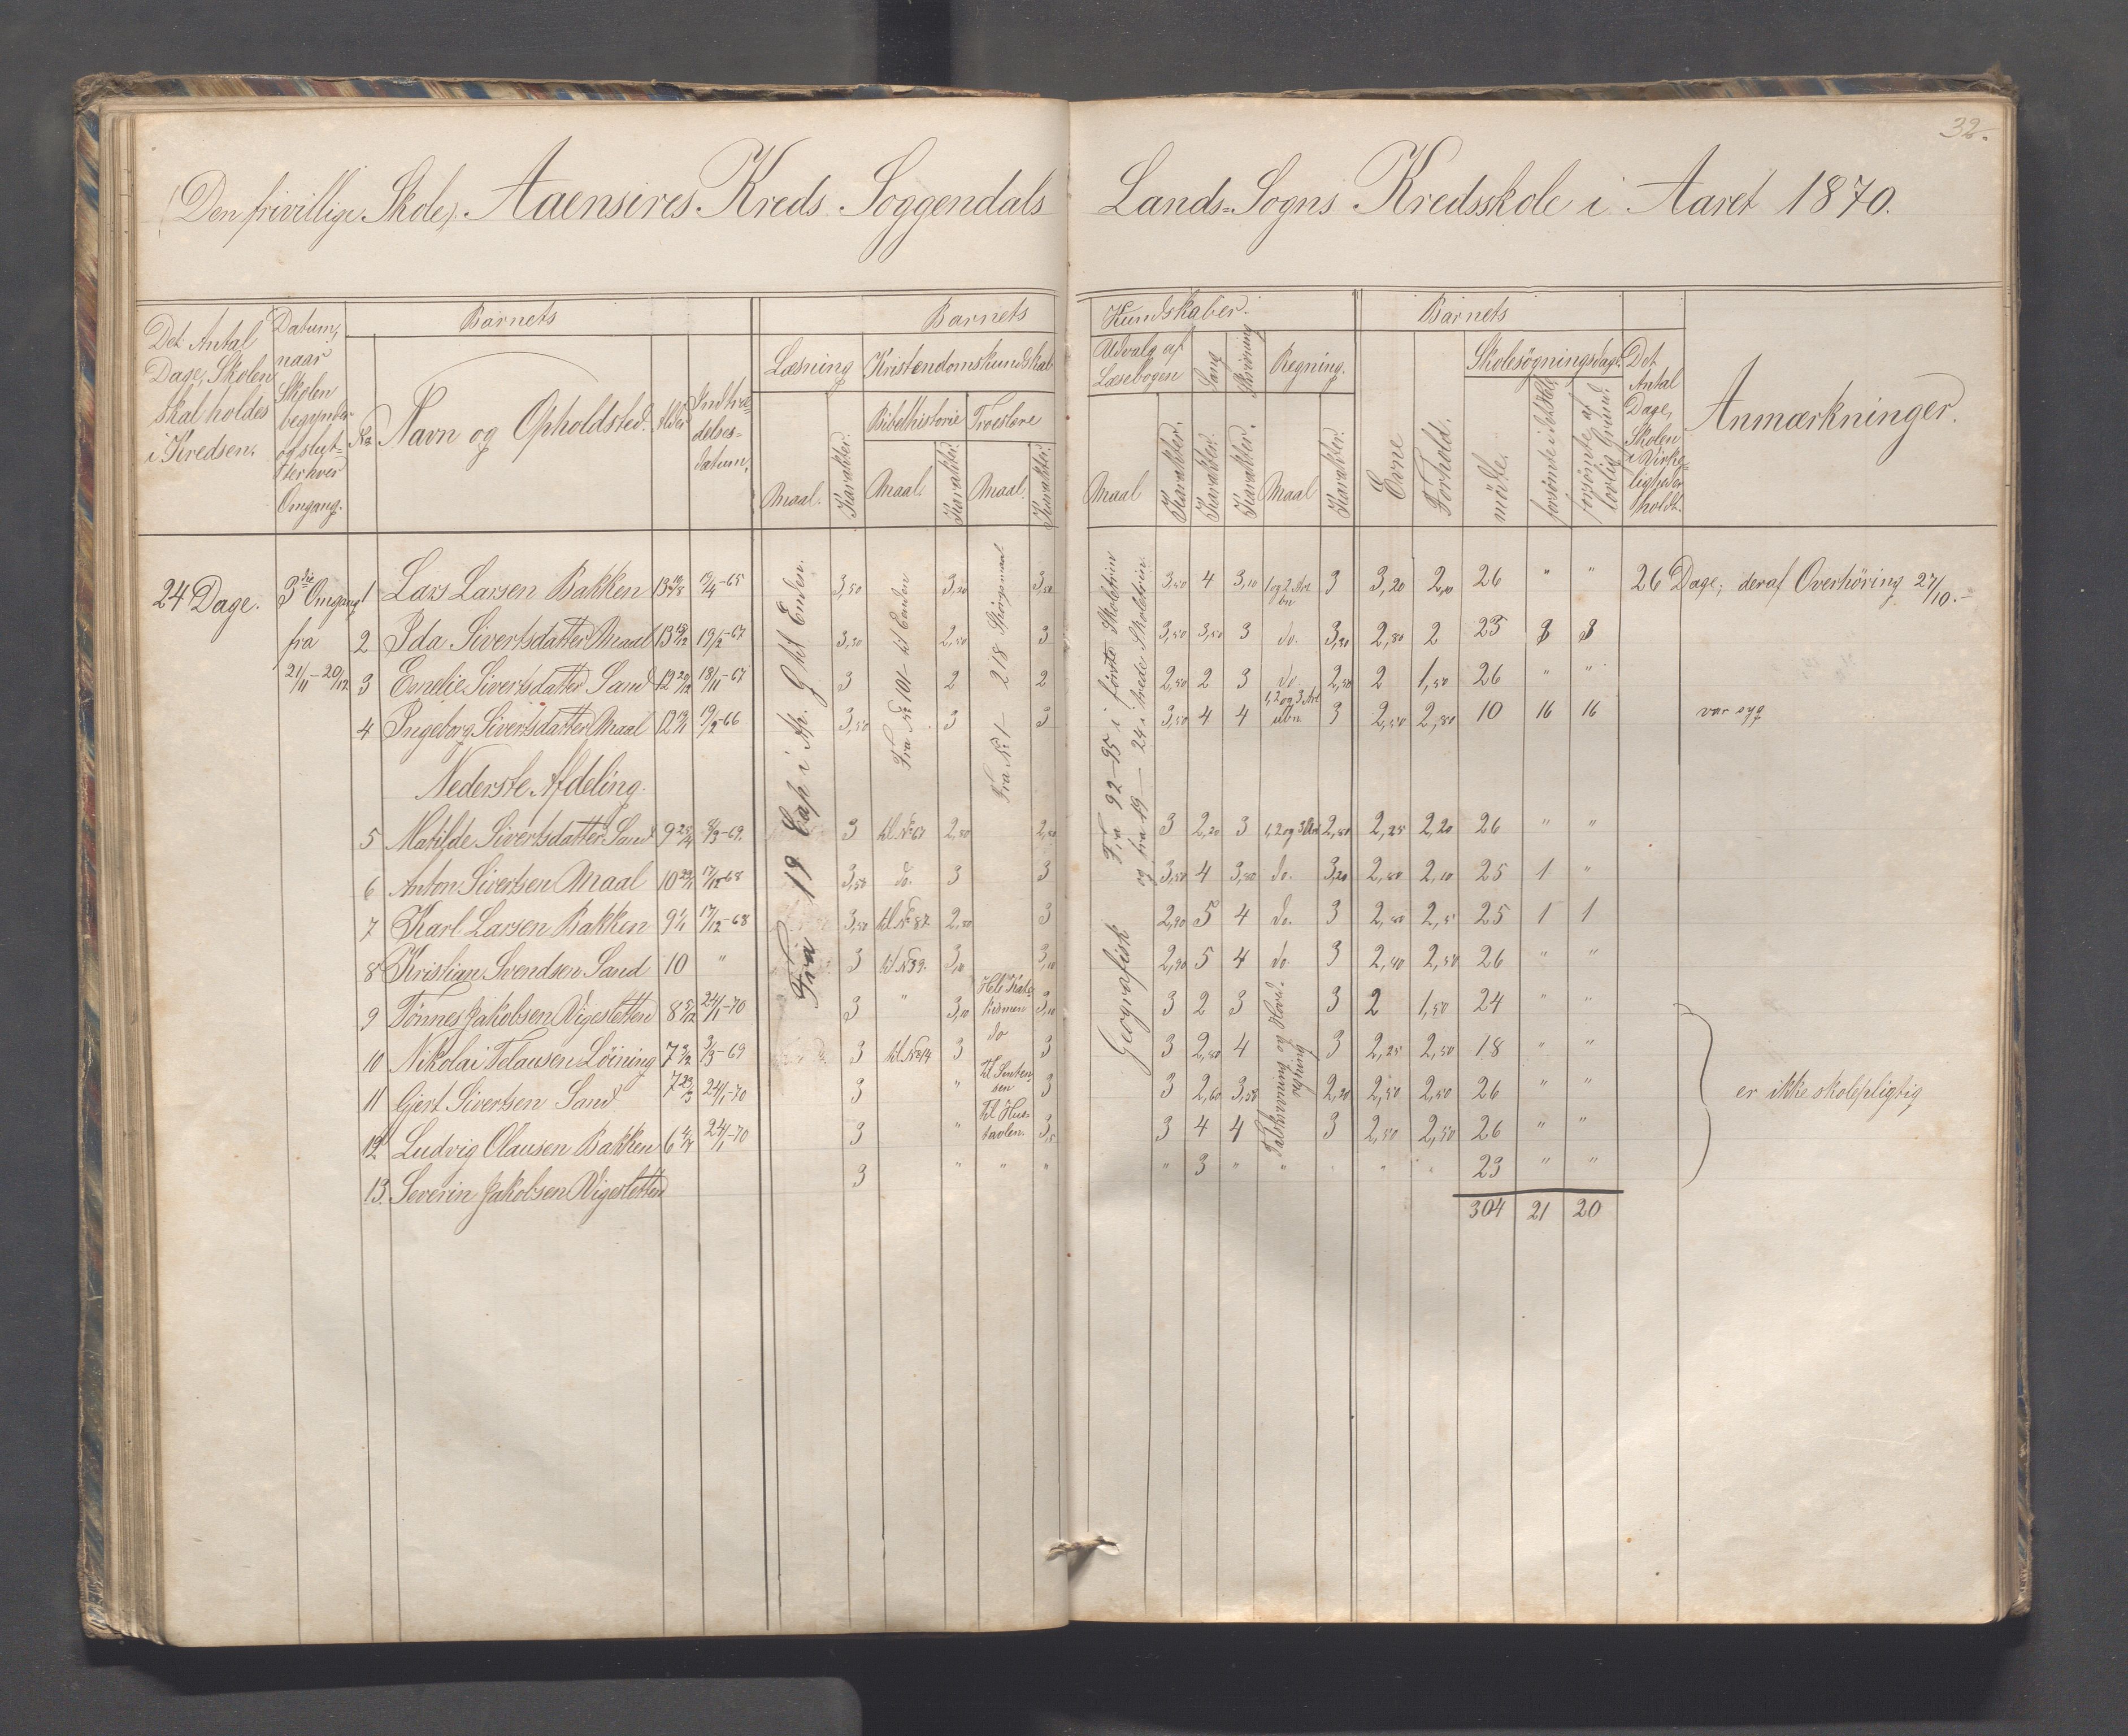 32.
(Den frivillige Skole). Aaensires Kreds Soggendals Lands=Sogns Kredsskole i Aaret 1870.
Det Antal Dage, Skolen skal holdes i Kredsen.
Datum, naar Skolen begynder og slutter hver Omgang.
Barnets
No
Navn og Opholdsted.
Alder
Indtrædelsesdatum.
Barnets Kundskaber.
Læsning
Maal.
Karakter.
Kristendomskundskab
Bibelhistorie
Maal.
Karakter.
Troeslære
Maal.
Karakter.
Udvalg af Læsebogen
Maal
Karakter.
Sang
Karakter.
Skrivning
Karakter.
Regning.
Maal
Karakter.
Barnets
Evne
Forhold.
Skolesøgningsdage.
mødte.
forsømte i det Hele.
forsømte af lovlig Grund.
Det Antal Dage, Skolen i Virkeligheden holdt.
Anmærkninger.
24 Dage.
3die Omgang
fra
21/11 – 20/12
Fra 19 Cap i Ap. Ght Enden.
Fra No 101 til Enden
Fra No 1 – 218 Spörgsmaal
Fra 92–95 i første Skoletrin
og fra 19 – 24 i tredie Skoletrin.
Geografisk
1 Lars Larsen Bakken 13 19/4-65 3,50 3,20 3,50 3,50 4 3,10 1 og 2 Art 3 3,20 2,10 26 " " 26 Dage; deraf Overhöring 27/10.–
2 Ida Sivertsdatter Maal 13 19/2-67 3,20 2,50 3 3,50 3,50 3 do. 3,20 2,80 2 23 3 3
3 Emelie Sivertsdatter Sand 12 18/11-67 3 2 2 2,50 2 3 do 2,50 2 1,50 26 " "
4 Ingeborg Sivertsdatter Maal 12 19/2-66 3,50 3 3 3,50 4 4 1,2 og 3 Art 3 2,50 2,80 10 16 16 var syg
Nederste Afdeling.
5 Matilde Sivertsdatter Sand 9 3-69. 3 til No 67 2,80 2,50 3 2,20 3 1,2 og 3 Art 2,80 2,25 2,20 26 " "
6 Anton Sivertsen Maal 10 17/12-68 3,50 do. 3 3 3,50 4 3,50 do. 3,20 2,80 2,10 25 1 "
7 Karl Larsen Bakken 9 17/12-68 3,50 til No 87. 2,80 3 2,90 5 4 do. 3 2,80 2,5 25 1 1
8 Kristian Svendsen Sand 10 " 3 til No 39. 3,10 3,10 2,90 5 4 do. 3 2,80 2,50 26 " "
9 Tönnes Jakobsen Vigesletten 8 24/1-70 3 " 3,10 Hele Katekismen 3,10 3 2 3 3 2 1,50 24 " "
Talskrivning og Hovedregning
10 Nikolai Tolausen Löining 7 3/3-69 3 til No 14 3 do 3 3 2,80 4 3 2,25 2,50 18 " "
11 Gjert Sivertsen Sand 7 24/1-70 3 " 3 3 2,60 3,50 2,20 2,50 2,50 26 " "
12 Ludvig Olausen Bakken 6 24/1-70 3 " til Hustavlen. 3,5 3 4 4 3 2,50 2,50 26 " "
13. Severin Jakobsen Vigesletten 3 " " " " 3 " " " " 23 " "
er ikke skolepligtig
304 21 20